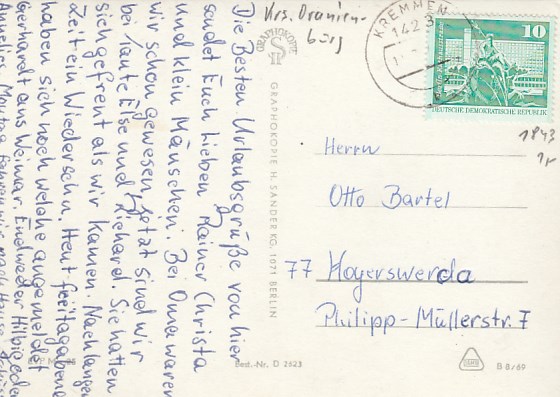 Die Besten Urlaubsgrüße von hier
sendet Euch lieben Rainer Christa
und klein Mäuschen. Bei Oma waren
wir schon gewesen jetzt sind wir
bei Tante Else und Richard. Sie hatten
sich gefreut als wir kamen. Nach langer
Zeit ein Wiedersehn. Heut Freitagabend
haben sich noch welche angemeldet
Gerhardt aus Weimar. Endweder Hilbig oder
Montag fahren wir nach Hause.
Krs. Oranien-
burg
KREMMEN
1423
10
DEUTSCHE DEMOKRATISCHE REPUBLIK
1843
GRAPHOKOPIE
GRAPHOKOPIE H. SANDER KG, 1071 BERLIN
Herrn
Otto Bartel
77 Hoyerswerda
Philipp-Müllerstr. 7
Best.-Nr. D 2623
B 8/69